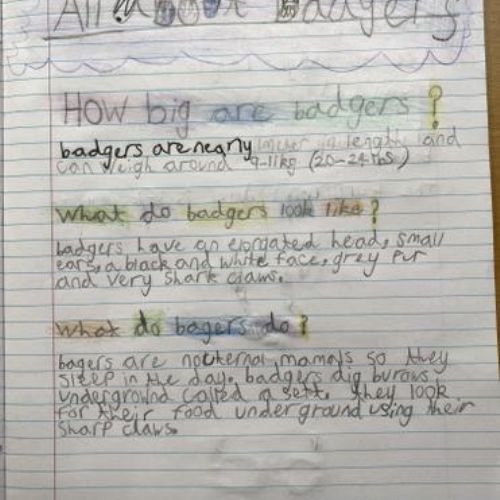 All About Badgers
How big are badgers?
badgers are nearly meter in length and
can weigh around 9-11kg (20-24 lbs)
What do badgers look like?
badgers have an elongated head, small
ears, a black and white face, grey fur
and very shark claws.
What do bagers do?
bagers are nocternal mamals so they
sleep in the day. badgers dig burows
underground called a sett. they look
for their food underground using their
sharp claws.